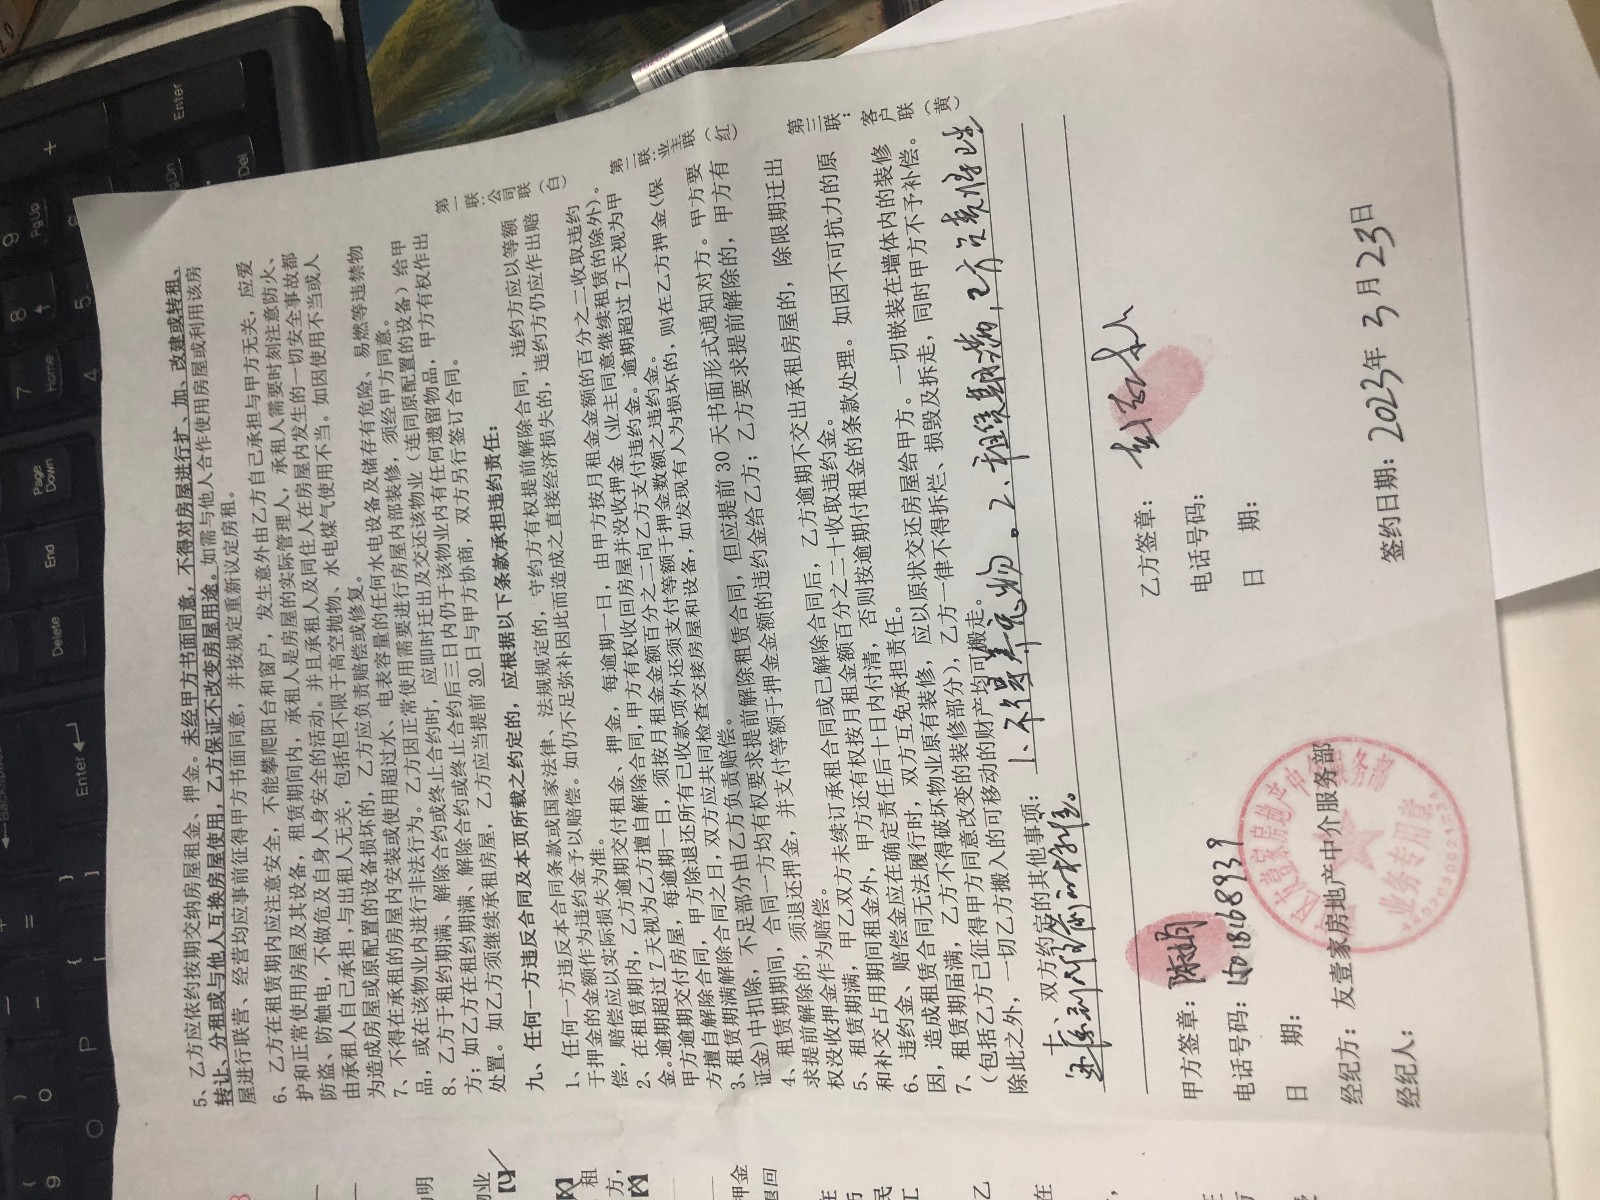 5、乙方应依约按期交纳房屋租金、押金。未经甲方书面同意，不得对房屋进行扩、加、改建或转租、
转让、分租或与他人互换房屋使用，乙方保证不改变房屋用途。如需与他人合作使用房屋或利用该房
屋进行联营、经营均应事前征得甲方书面同意，并按规定重新议定房租。
6、乙方在租赁期内应注意安全，不能攀爬阳台和窗户，发生意外由乙方自己承担与甲方无关，应爱
护和正常使用房屋及其设备，租赁期间内，承租人是房屋的实际管理人，承租人需要时刻注意防火、
防盗、防触电，不做危及自身人身安全的活动。并且承租人及同住人在房屋内发生的一切安全事故都
由承租人自己承担，与出租人无关，包括但不限于高空抛物、水电煤气使用不当。如因使用不当或人
为造成房屋或原配置的设备损坏的，乙方应负责赔偿或修复。
7、不得在承租的房屋内安装或使用超过水、电表容量的任何水电设备及储存有危险、易燃等违禁物
品，或在该物业内进行非法行为。乙方因正常使用需要进行房屋内部装修，须经甲方同意。
8、乙方于租约期满、解除合约或终止合约时，应即时迁出及交还该物业（连同原配置的设备）给甲
方；如乙方在租约期满、解除合约或终止合约后三日内仍于该物业内有任何遗留物品，甲方有权作出
处置。如乙方须继续承租房屋，乙方应当提前30日与甲方协商，双方另行签订合同。
九、任何一方违反合同及本页所载之约定的，应根据以下条款承担违约责任：
1、任何一方违反本合同条款或国家法律、法规规定的，守约方有权提前解除合同，违约方应以等额
于押金的金额作为违约金予以赔偿。如仍不足弥补因此而造成之直接经济损失的，违约方仍应作出赔
偿，赔偿应以实际损失为准。
2、在租赁期内，乙方逾期交付租金、押金，每逾期一日，由甲方按月租金金额的百分之二收取违约
金。逾期超过7天视为乙方擅自解除合同，甲方有权收回房屋并没收押金（业主同意继续租赁的除外）。
甲方逾期交付房屋，每逾期一日，须按月租金金额百分之二向乙方支付违约金。逾期超过7天视为甲
方擅自解除合同，甲方除退还所有已收款项外还须支付等额于押金数额之违约金。
3、租赁期满解除合同之日，双方应共同检查交接房屋和设备，如发现有人为损坏的，则在乙方押金（保
证金）中扣除，不足部分由乙方负责赔偿。
4、租赁期期间，合同一方均有权要求提前解除租赁合同，但应提前30天书面形式通知对方。甲方要
求提前解除的，须退还押金，并支付等额于押金金额的违约金给乙方；乙方要求提前解除的，甲方有
权没收押金作为赔偿。
5、租赁期满，甲乙双方未续订承租合同或已解除合同后，乙方逾期不交出承租房屋的，除限期迁出
和补交占用期间租金外，甲方还有权按月租金额百分之二十收取违约金。
6、违约金、赔偿金应在确定责任后十日内付清，否则按逾期付租金的条款处理。如因不可抗力的原
因，造成租赁合同无法履行时，双方互免承担责任。
7、租赁期届满，乙方不得破坏物业原有装修，应以原状交还房屋给甲方。一切嵌装在墙体内的装修
（包括乙方已征得甲方同意改变的装修部分），乙方一律不得拆烂、损毁及拆走，同时甲方不予补偿。
除此之外，一切乙方搬入的可移动的财产均可搬走。
十、双方约定的其他事项：1、不得养宠物。2、租赁期满，乙方
第一联：公司联（白）
第二联：业主联（红）
第三联：客户联（黄）
甲方签章：
乙方签章：
电话号码：
电话号码：
日 期：
日 期：
经纪方：友壹家房地产中介服务部
经纪人：
签约日期：2023年3月23日
业务专用章
Enter
Delete
End
Page Down
Home
PgUp
Del
Enter